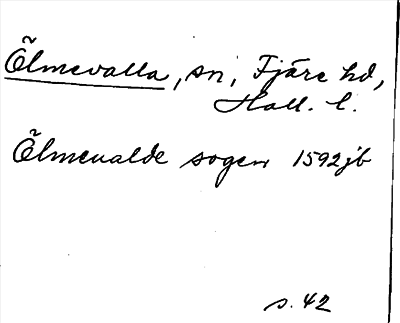 Ölmevalla, sn, Fjäre hd,
Hall. l.
Ölmeualde sogen 1592 jb
s. 42